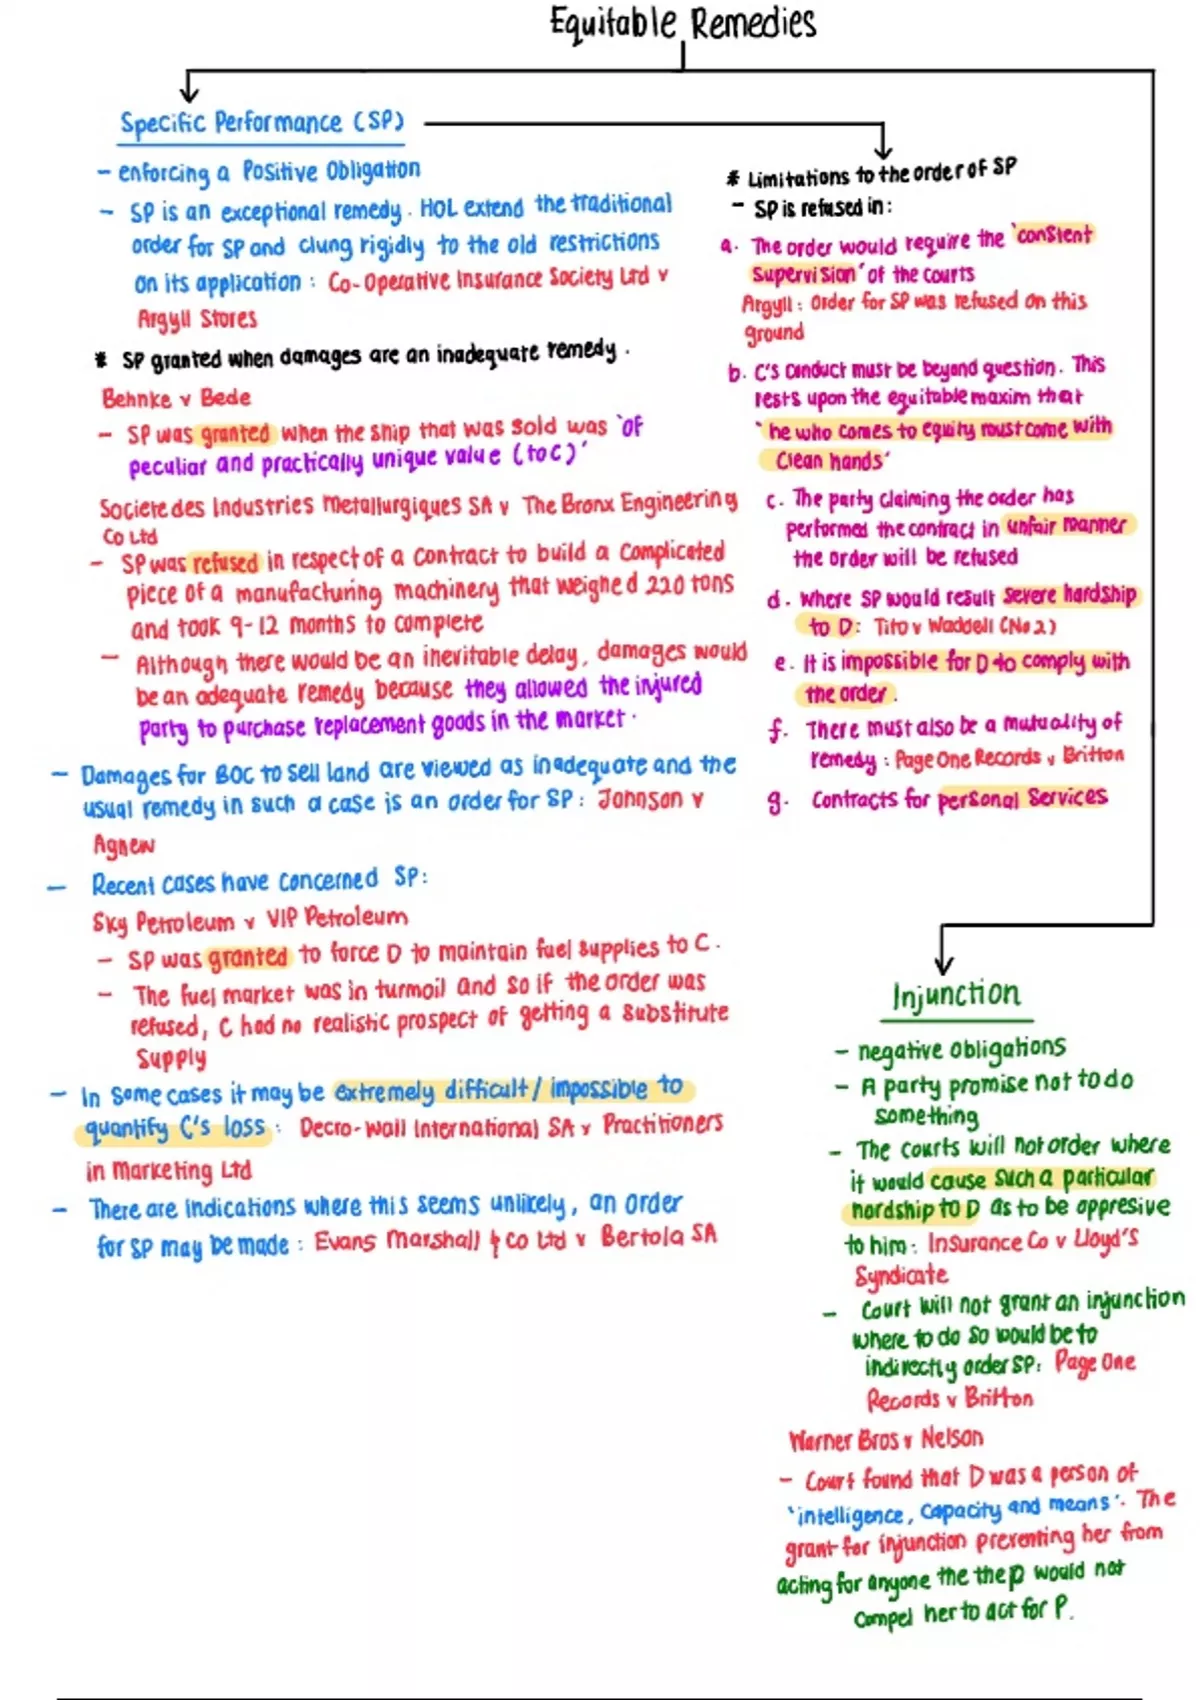 Equitable Remedies
Specific Performance (SP)
- enforcing a Positive Obligation
- SP is an exceptional remedy. HOL extend the traditional
order for SP and clung rigidly to the old restrictions
on its application : Co-Operative Insurance Society Ltd v
Argyll Stores
* SP granted when damages are an inadequate remedy.
Behnke v Bede
- SP was granted when the ship that was sold was 'of
peculiar and practically unique value (to C)'
Societe des Industries Metallurgiques SA v The Bronx Engineering
Co Ltd
- SP was refused in respect of a contract to build a complicated
piece of a manufacturing machinery that weighed 220 tons
and took 9-12 months to complete
- Although there would be an inevitable delay, damages would
be an adequate remedy because they allowed the injured
party to purchase replacement goods in the market.
- Damages for BOC to sell land are viewed as inadequate and the
usual remedy in such a case is an order for SP : Johnson v
Agnew
- Recent cases have concerned SP:
Sky Petroleum v VIP Petroleum
- SP was granted to force D to maintain fuel supplies to C.
- The fuel market was in turmoil and so if the order was
refused, C had no realistic prospect of getting a substitute
supply
- In some cases it may be extremely difficult / impossible to
quantify C's loss : Decro-Wall International SA v Practitioners
in Marketing Ltd
- There are indications where this seems unlikely, an order
for SP may be made : Evans Marshall & Co Ltd v Bertola SA
* Limitations to the order of SP
- SP is refused in:
a. The order would require the 'constent
Supervision' of the courts
Argyll : order for SP was refused on this
ground
b. C's conduct must be beyond question. This
rests upon the equitable maxim that
'he who comes to equity must come with
Clean hands'
c. The party claiming the order has
performed the contract in unfair manner
the order will be refused
d. Where SP would result severe hardship
to D: Tito v Waddell (No 2)
e. It is impossible for D to comply with
the order.
f. There must also be a mutuality of
remedy : Page One Records v Britton
g. Contracts for personal services
Injunction
- negative obligations
- A party promise not to do
something
- The courts will not order where
it would cause such a particular
hardship to D as to be oppresive
to him : Insurance Co v Lloyd's
Syndicate
- Court will not grant an injunction
where to do so would be to
indirectly order SP: Page One
Records v Britton
Warner Bros v Nelson
- Court found that D was a person of
'intelligence, capacity and means'. The
grant for injunction preventing her from
acting for anyone the the p would not
compel her to act for P.